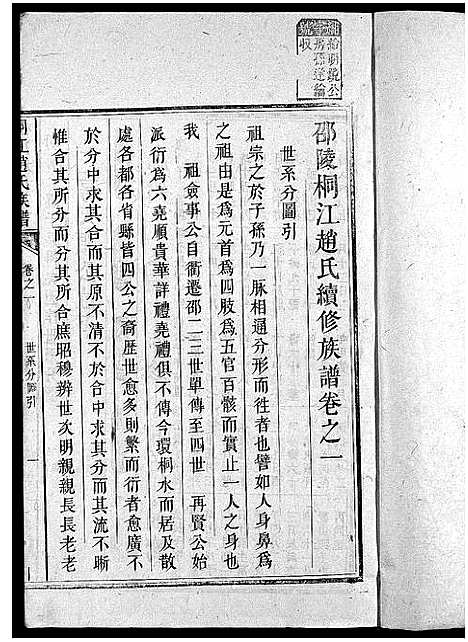 給明鏡公
房孫達綸
收
邵陵桐江趙氏續修族譜卷之一
世系分圖引
祖宗之於子孫乃一脉相通分形而徃者也譬如人身鼻爲
之祖由是爲元首爲四肢爲五官百骸而實止一人之身也
我　祖僉事公自衢遷邵二三世單傳至四世　再賢公始
派衍爲六堯順貴華詳禮堯禮俱不傳今環桐水而居及散
處各都各省縣皆四公之裔歷世愈多則繁而衍者愈廣不
於分中求其合而其原不清不於合中求其分而其流不晰
惟合其所分而分其所合庶昭穆辨世次明親親長長老老
桐江趙氏族譜
卷之一
世系分圖引
一